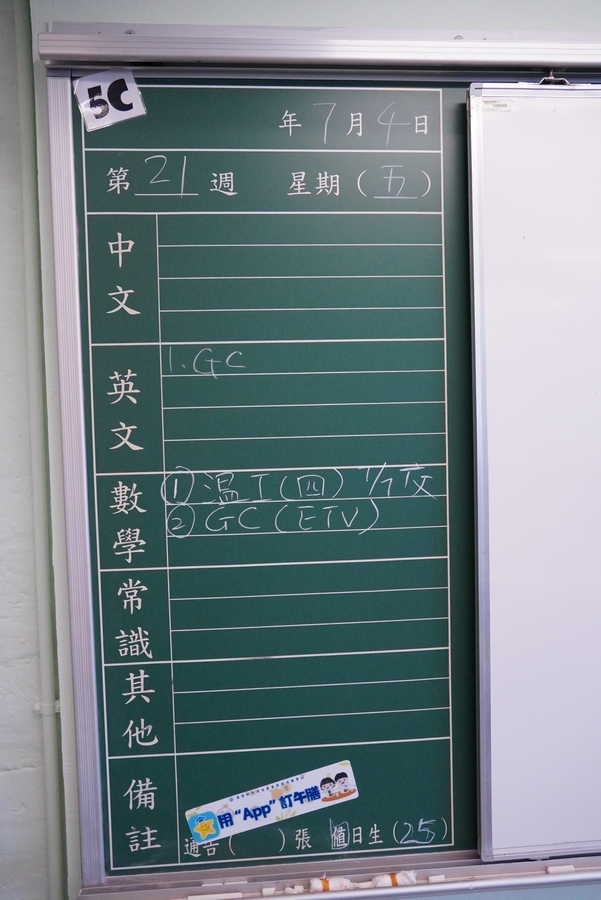 5C
年 7 月 4 日
第 21 週 星期（五）
中文
英文
1. GC
數學
① 溫工(四) 7/7交
② GC (ETV)
常識
其他
備註
用“App”訂午膳
通告（ ）張 值日生（25）